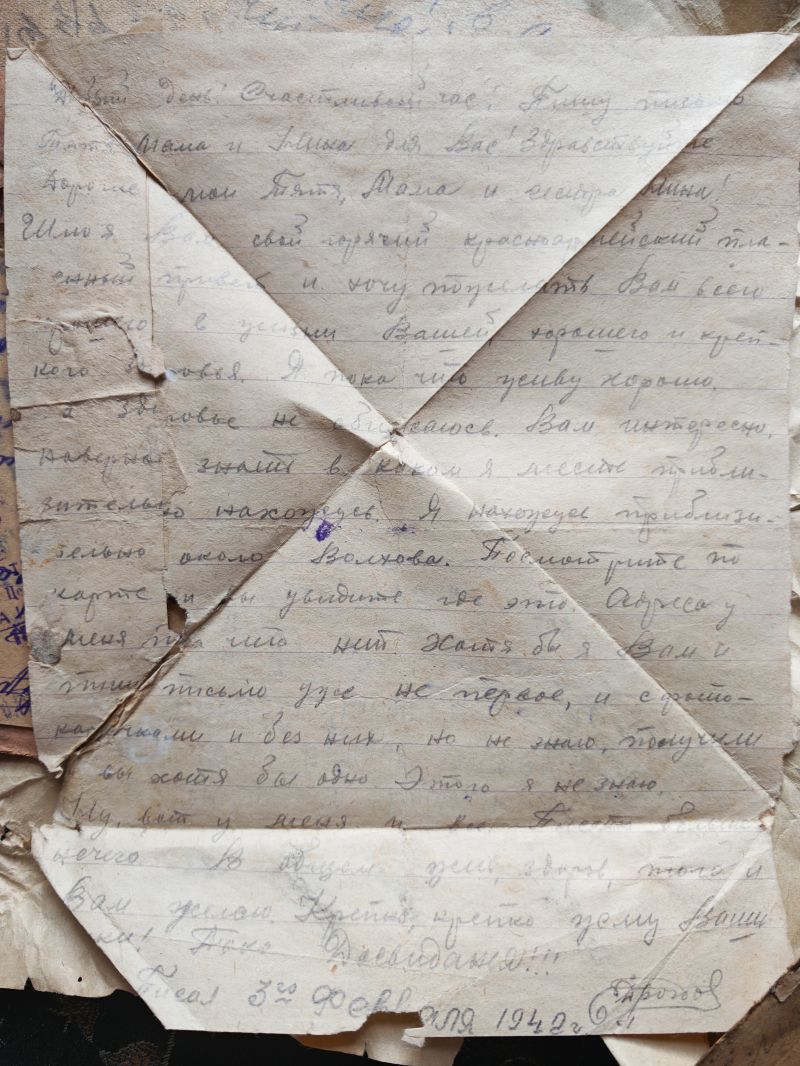 Добрый день! Счастливый час! Пишу письмо
Тятя мама и Нина для Вас! Здравствуйте
дорогие мои Тятя, Мама и сестра Нина!
Шлю я Вам свой горячий красноармейский пла-
менный привет и хочу пожелать Вам всего
в жизни Вашей, хорошего и креп-
кого здоровья. Я пока что живу хорошо.
на здоровье не обижаюсь. Вам интересно,
наверное знать в каком я месте прибли-
зительно нахожусь. Я нахожусь приблизи-
тельно около Волхова. Посмотрите по
карте и вы увидите где это. Адреса у
меня пока что нет Хотя бы я Вам и
пишу письмо уже не первое, и с фото-
карточками и без них, но не знаю, получили
вы хотя бы одно Этого я не знаю.
Ну, вот у меня и все. Писать больше
нечего. В общем жив, здоров, того и
Вам желаю. Крепко, крепко жму Ваши
ки! Пока Досвидания!!!
Писал 3го Февраля 1942 г.